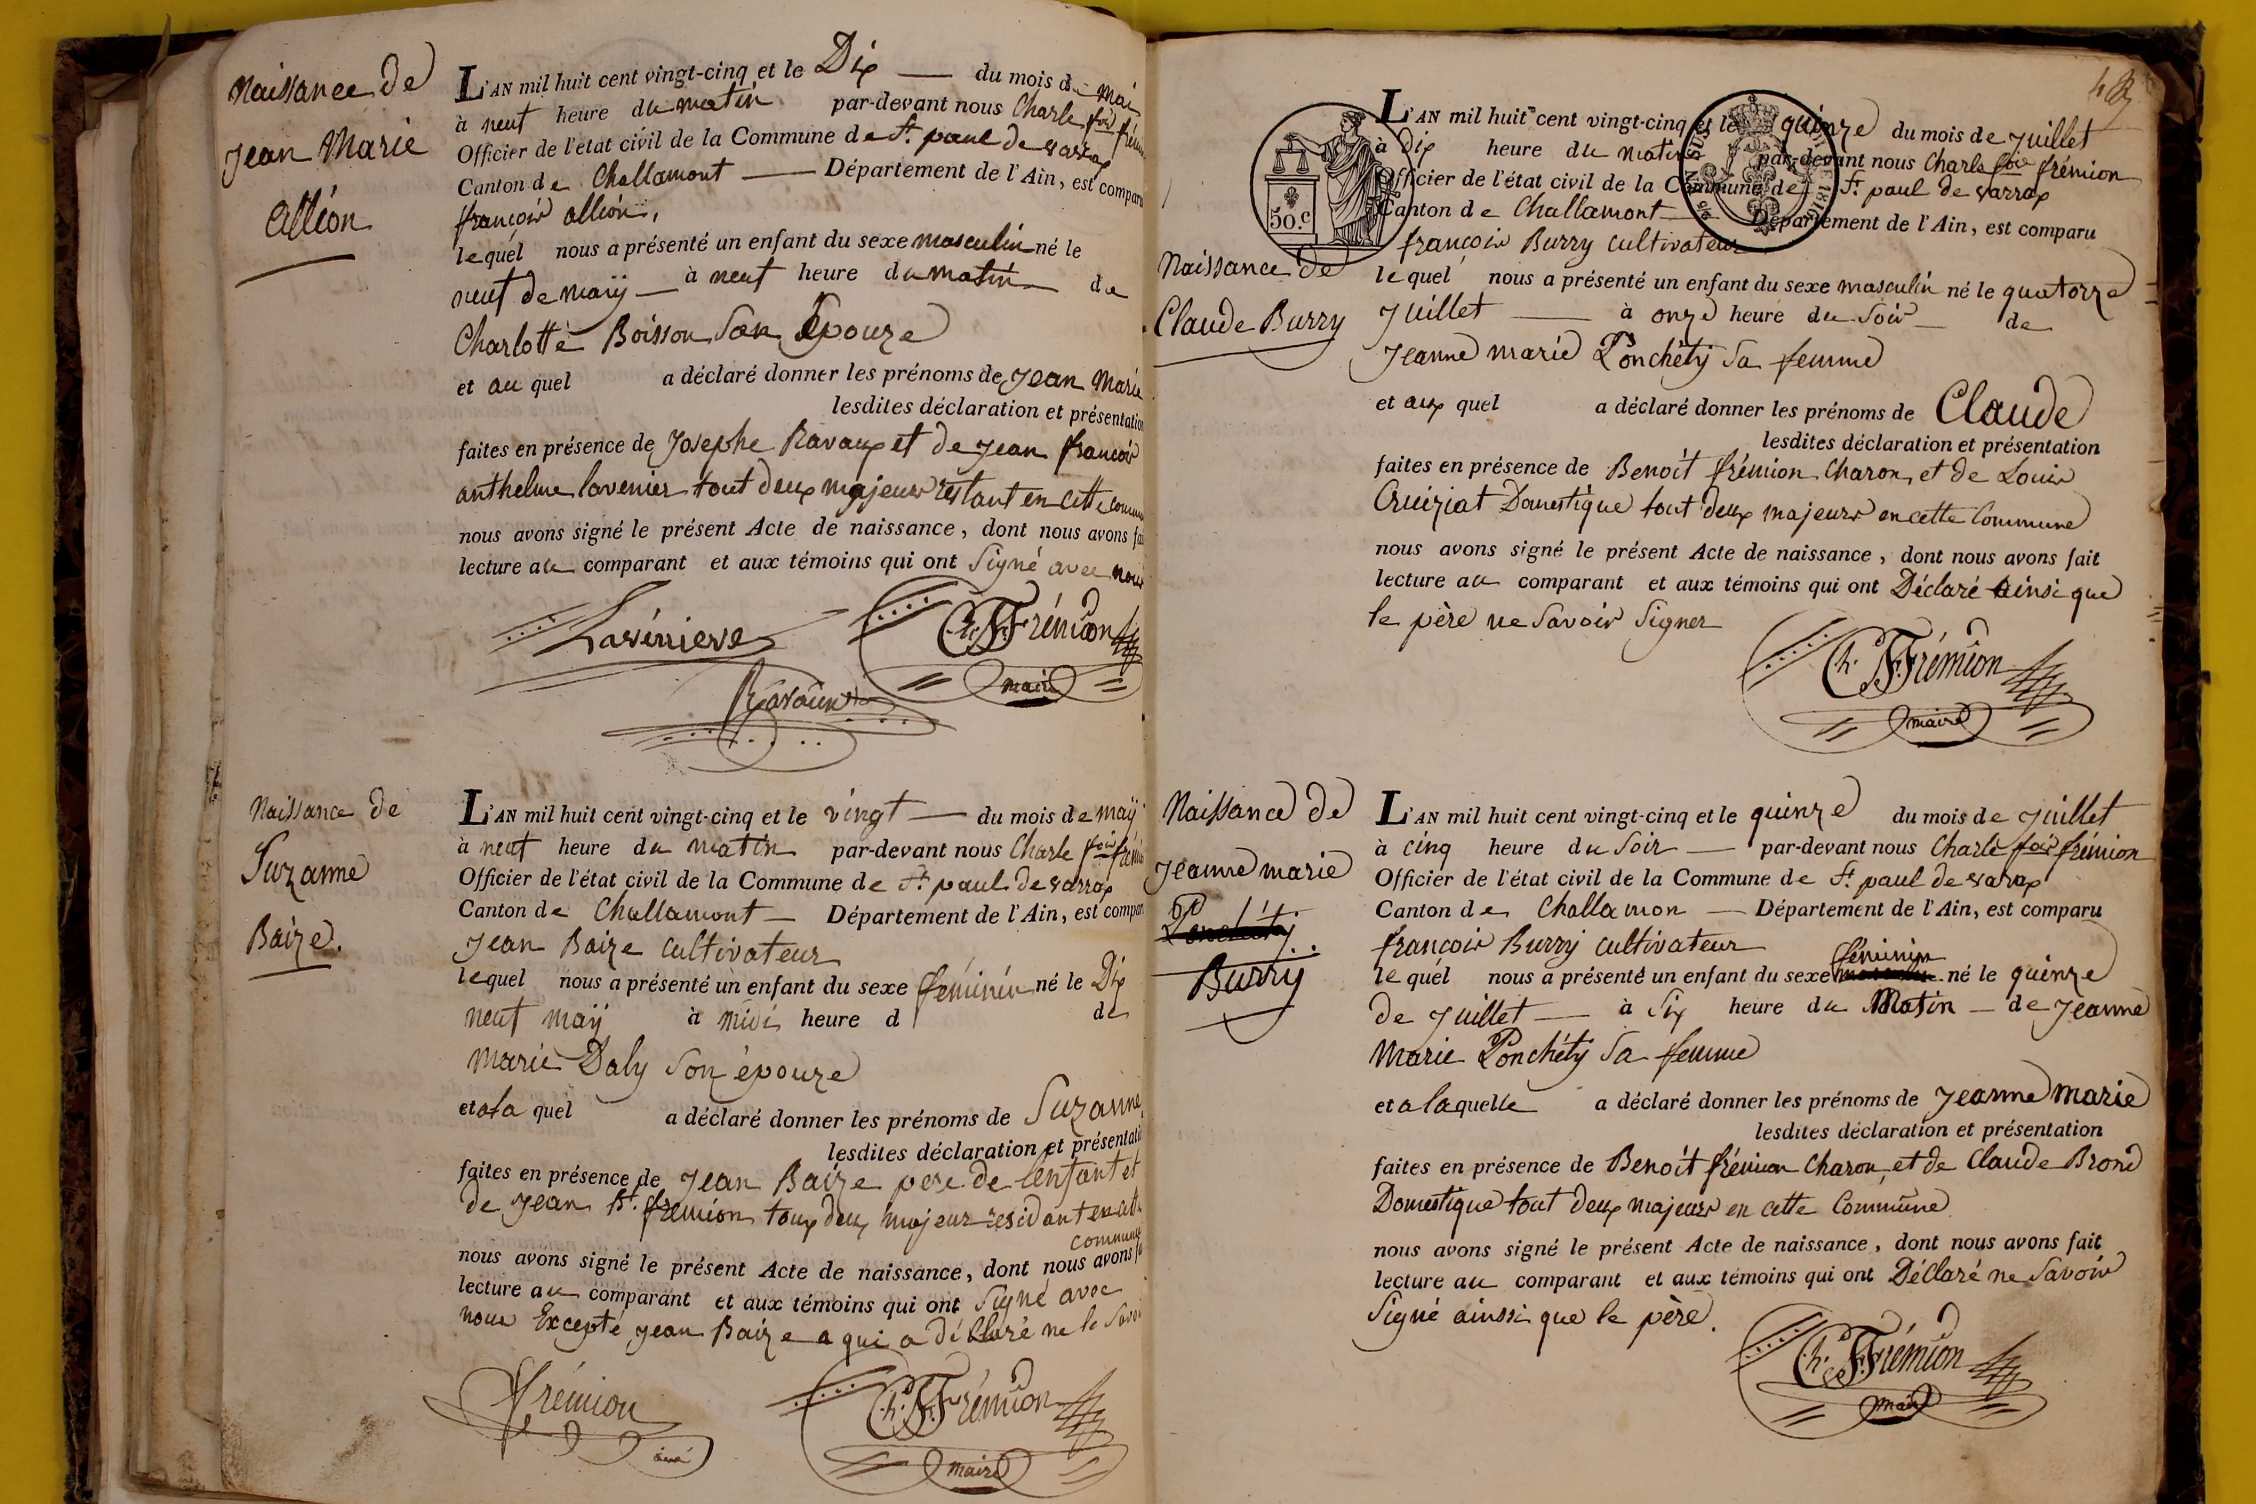 Naissance de
Jean Marie
Allion
L'AN mil huit cent vingt-cinq et le Dix du mois de mai
à neuf heure du matin par-devant nous Charle fois frém
Officier de l'état civil de la Commune de St. paul de varax
Canton de Challamont Département de l'Ain, est comparu
françois allion,
lequel nous a présenté un enfant du sexe masculin né le
neuf de maÿ à neuf heure du matin de
Charlotte Boisson Son Epouze
et au quel a déclaré donner les prénoms de Jean Marie
lesdites déclaration et présentation
faites en présence de Josephe Ravaux et de Jean francois
anthelme lavenier tout deux majeurs restant en cette commu
nous avons signé le présent Acte de naissance, dont nous avons fai
lecture au comparant et aux témoins qui ont Signé avec nous
Ch. F. Frémion
maire
Naissance de
Suzanne
Baize.
L'AN mil huit cent vingt-cinq et le vingt du mois de maÿ
à neuf heure du matin par-devant nous Charle fois frémi
Officier de l'état civil de la Commune de St. paul de varax
Canton de Challamont Département de l'Ain, est compar
Jean Baize cultivateur
lequel nous a présenté un enfant du sexe féminin né le Dix
neuf maÿ à midi heure d de
Marie Daly Son épouze
et a la quel a déclaré donner les prénoms de Suzanne,
lesdites déclaration et présentati
faites en présence de Jean Baize pere de lenfant et
de Jean Bt. fremion toux deux majeur residant en cette
commune
nous avons signé le présent Acte de naissance, dont nous avons fa
lecture au comparant et aux témoins qui ont Signé avec
nous Excepté Jean Baize a qui a déclaré ne le Savoi
frémion
Ch. F. Frémion
maire
50.c
L'AN mil huit cent vingt-cinq et le quinze du mois de Juillet
à Dix heure du matin par-devant nous Charle fois frémion
Officier de l'état civil de la Commune de St. paul de varrax
Canton de Challamont Département de l'Ain, est comparu
françois Burry cultivateur
Naissance de
Claude Burry
lequel nous a présenté un enfant du sexe masculin né le quatorze
Juillet à onze heure du Soir de
Jeanne marie Ponchéty Sa femme
et aux quel a déclaré donner les prénoms de Claude
lesdites déclaration et présentation
faites en présence de Benoit frémion Charon, et de Louis
Cruiziat Domestique tout deux majeurs en cette Commune
nous avons signé le présent Acte de naissance, dont nous avons fait
lecture au comparant et aux témoins qui ont Déclaré ainsi que
le père ne Savoir Signer
Ch. F. Frémion
maire
Naissance de
Jeanne marie
Burry
L'AN mil huit cent vingt-cinq et le quinze du mois de Juillet
à cinq heure du Soir par-devant nous Charle fois frémion
Officier de l'état civil de la Commune de St. paul de varax
Canton de Challamon Département de l'Ain, est comparu
françois Burry cultivateur
féminin
lequel nous a présenté un enfant du sexe né le quinze
de Juillet à Six heure du Matin de Jeanne
Marie Ponchéty Sa femme
et a laquelle a déclaré donner les prénoms de Jeanne marie
lesdites déclaration et présentation
faites en présence de Benoit frémion Charon, et de Claude Brond
Domestique tout deux majeurs en cette Commune
nous avons signé le présent Acte de naissance, dont nous avons fait
lecture au comparant et aux témoins qui ont Déclaré ne Savoir
Signé ainsi que le père.
Ch. F. Frémion
maire